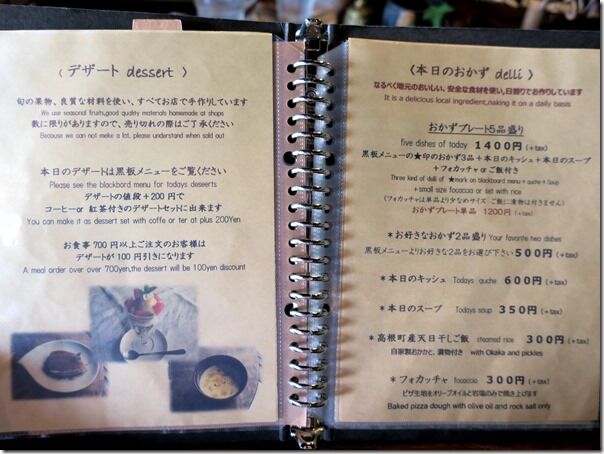 〈 デザート dessert 〉
旬の果物、良質な材料を使い、すべてお店で手作りしています
We use seasonal fruits,good quality materials homemade at shops
数に限りがありますので、売り切れの際はご了承ください
Because we can not make a lot, please understand when sold out
本日のデザートは黒板メニューをご覧ください
Please see the blackbord menu for todays deseerts
デザートの値段+200円で
コーヒーor 紅茶付きのデザートセットに出来ます
You can make it as dessert set with coffe or ter at plus 200Yen
お食事700円以上ご注文のお客様は
デザートが100円引きになります
A meal order over over 700yen,the dessert will be 100yen discount
〈本日のおかず delli 〉
なるべく地元のおいしい、安全な食材を使い、日替りでお作りしています
It is a delicious local ingredient,naking it on a daily basis
おかずプレート5品盛り
five dishes of today 1400円(+tax)
黒板メニューの★印のおかず3品+本日のキッシュ+本日のスープ
+フォカッチャorご飯付き
Three kind of delli of ★mark on blackboard menu+quche+Soup
+small size focaccia or set with rice
(フォカッチャは単品より少なめサイズ ご飯に漬物は付きません)
おかずプレート単品 1200円(+tax)
*お好きなおかず2品盛り Your favorite two dishes
黒板メニューよりお好きな2品をお選び下さい 500円(+tax)
*本日のキッシュ Todays quche 600円(+tax)
*本日のスープ Todays soup 350円(+tax)
*高根町産天日干しご飯 steamed rice 300円(+tax)
自家製おかかと、漬物付き with Okaka and pickles
*フォカッチャ fococcia 300円(+tax)
ピザ生地をオリーブオイルと岩塩のみで焼き上げます
Baked pizza dough with olive oil and rock salt only